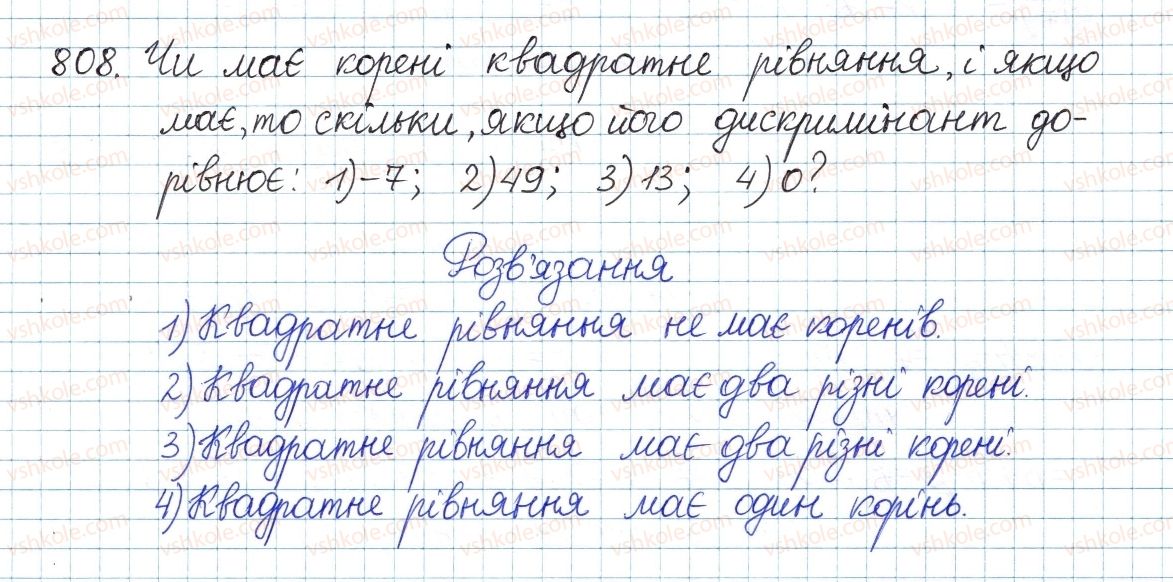 808. Чи має корені квадратне рівняння, і якщо
має, то скільки, якщо його дискримінант до-
рівнює: 1) -7; 2) 49; 3) 13; 4) 0?
Розв'язання
1) Квадратне рівняння не має коренів.
2) Квадратне рівняння має два різні корені.
3) Квадратне рівняння має два різні корені.
4) Квадратне рівняння має один корінь.
vshkole.com